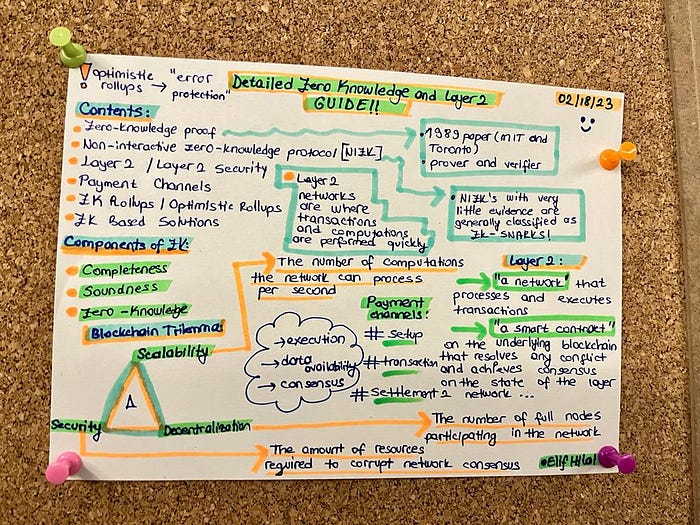 ! Optimistic rollups → "error protection"
Detailed Zero Knowledge and Layer 2
GUIDE!!
02/18/23
Contents:
Zero-knowledge proof
Non-interactive zero-knowledge protocol [NIZK]
Layer 2 / Layer 2 Security
Payment Channels
ZK Rollups / Optimistic Rollups
ZK Based Solutions
• 1989 paper (MIT and
Toronto)
• prover and verifier
• NIZK's with very
little evidence are
generally classified as
ZK-SNARKS!
Layer 2
networks
are where
transactions
and computations
are performed quickly
Components of ZK:
Completeness
Soundness
Zero-Knowledge
Blockchain Trilemma
Scalability
Security
Decentralization
1
The number of computations
the network can process
per second
→ execution
→ data
availability
→ consensus
Payment
channels:
# setup
# transaction
# Settlement
Layer 2:
"a network" that
processes and executes
transactions
"a smart contract"
on the underlying blockchain
that resolves any conflict
and achieves consensus
on the state of the layer
2 network ...
The number of full nodes
participating in the network
The amount of resources
required to corrupt network consensus